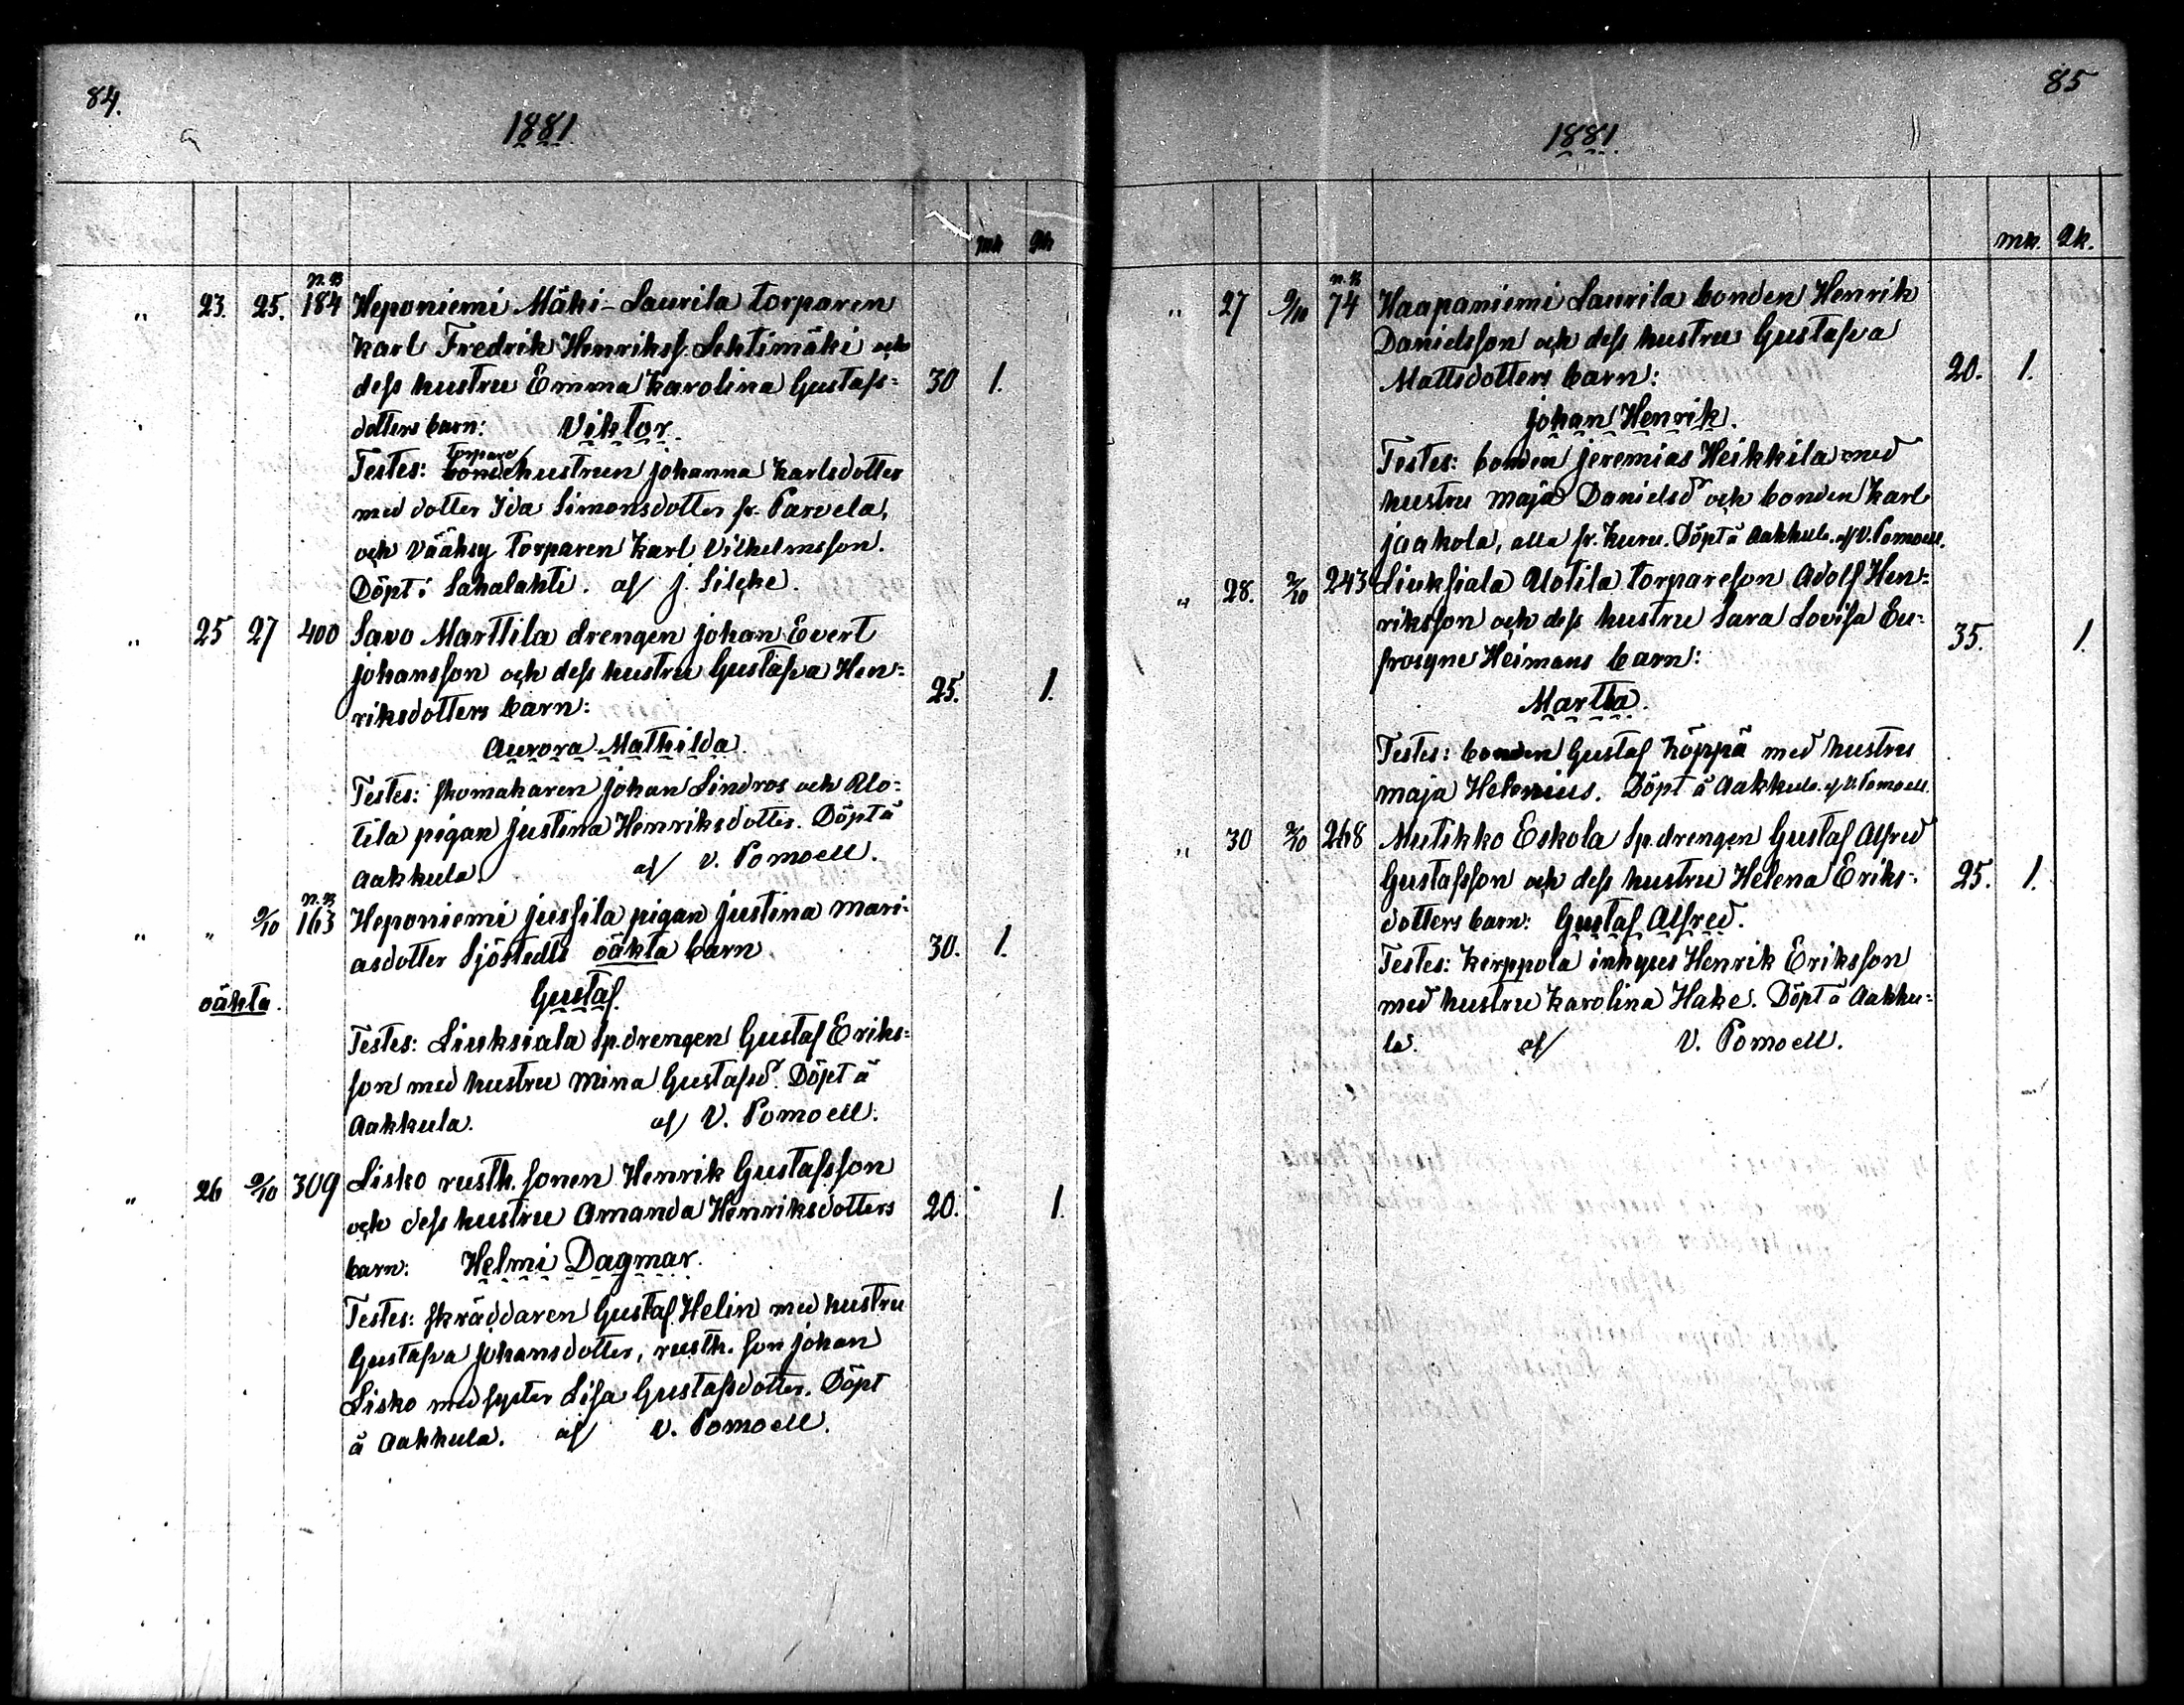 84.
1881.
mk pk
n. B
„ 23. 25. 184 Heponiemi Mäki-Laurila torparen
Karl Fredrik Henrikss. Lehtimäki och
dess hustru Emma Karolina Gustafs= 30 1.
dotters barn: Viktor.
torpare
Testes: bondehustrun Johanna Karlsdotter
med dotter Ida Simonsdotter fr. Parvela,
och Vääksy torparen Karl Vilhelmsson.
Döpt i Sahalahti. af J. Silcke.
„ 25 27 400 Savo Marttila drengen Johan Evert
Johansson och dess hustru Gustafva Hen=
riksdotters barn: 25. 1.
Aurora Mathilda.
Testes: skomakaren Johan Lindros och Alo=
tila pigan Justina Henriksdotter. Döpt å
Aakkula. af V. Pomoell.
n. B
„ „ 2/10 163 Heponiemi Jussila pigan Justina Mari=
asdotter Sjöstedts oäkta barn 30. 1.
oäkta. Gustaf.
Testes: Liuksiala sp.drengen Gustaf Eriks=
son med hustru Mina Gustafsd. Döpt å
Aakkula. af V. Pomoell.
„ 26 2/10 309 Lisko rusth. sonen Henrik Gustafsson
och dess hustru Amanda Henriksdotters 20. 1.
barn: Helmi Dagmar.
Testes: skräddaren Gustaf Helin med hustru
Gustafva Johansdotter, rusth. son Johan
Lisko med syster Lisa Gustafsdotter. Döpt
å Aakkula. af V. Pomoell.
85
1881.
mk. pk.
n. B
„ 27 2/10 74 Haapaniemi Laurila bonden Henrik
Danielsson och dess hustru Gustafva
Mattsdotters barn: 20. 1.
Johan Henrik.
Testes: bonden Jeremias Heikkila med
hustru Maja Danielsd och bonden Karl
Jaakola, alla fr. Kuru. Döpt å Aakkula. af V. Pomoell.
„ 28. 2/10 243 Liuksiala Alotila torpareson Adolf Hen=
riksson och dess hustru Sara Lovisa Eu=
frosyne Heimans barn: 35. 1.
Martta.
Testes: bonden Gustaf Köppä med hustru
Maja Helenius. Döpt å Aakkula. af V. Pomoell.
„ 30 2/10 268 Mutikko Eskola sp.drengen Gustaf Alfred
Gustafsson och dess hustru Helena Eriks= 25. 1.
dotters barn: Gustaf Alfred.
Testes: Kerppola inhyses Henrik Eriksson
med hustru Karolina Hake. Döpt å Aakku=
la. af V. Pomoell.